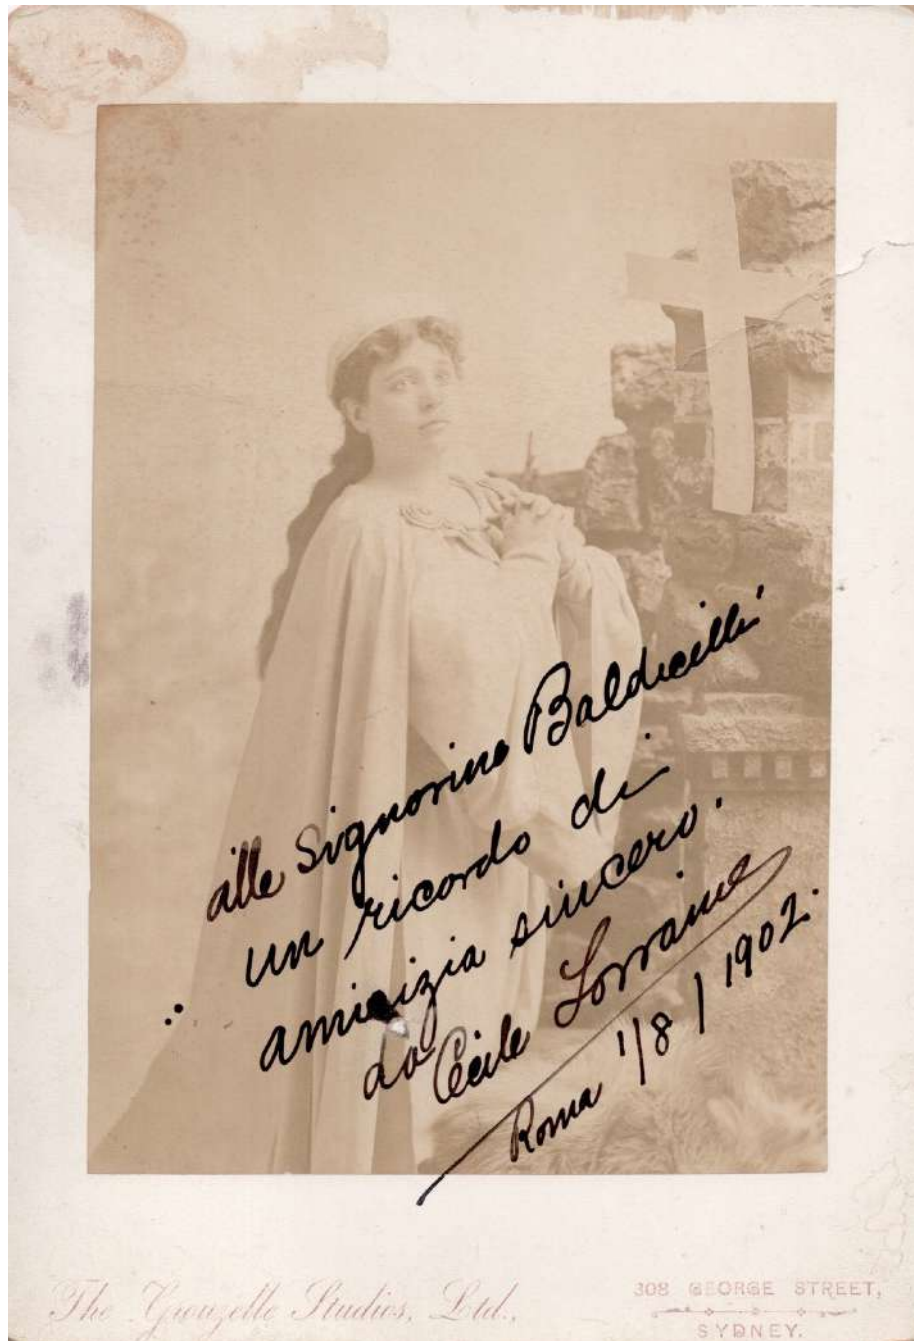 alle Signorine Baldicelli
un ricordo di
amicizia sincera.
da Cécile Lorraine
Roma 1/8/1902.
The Studios, Ltd.,
308 GEORGE STREET,
SYDNEY.